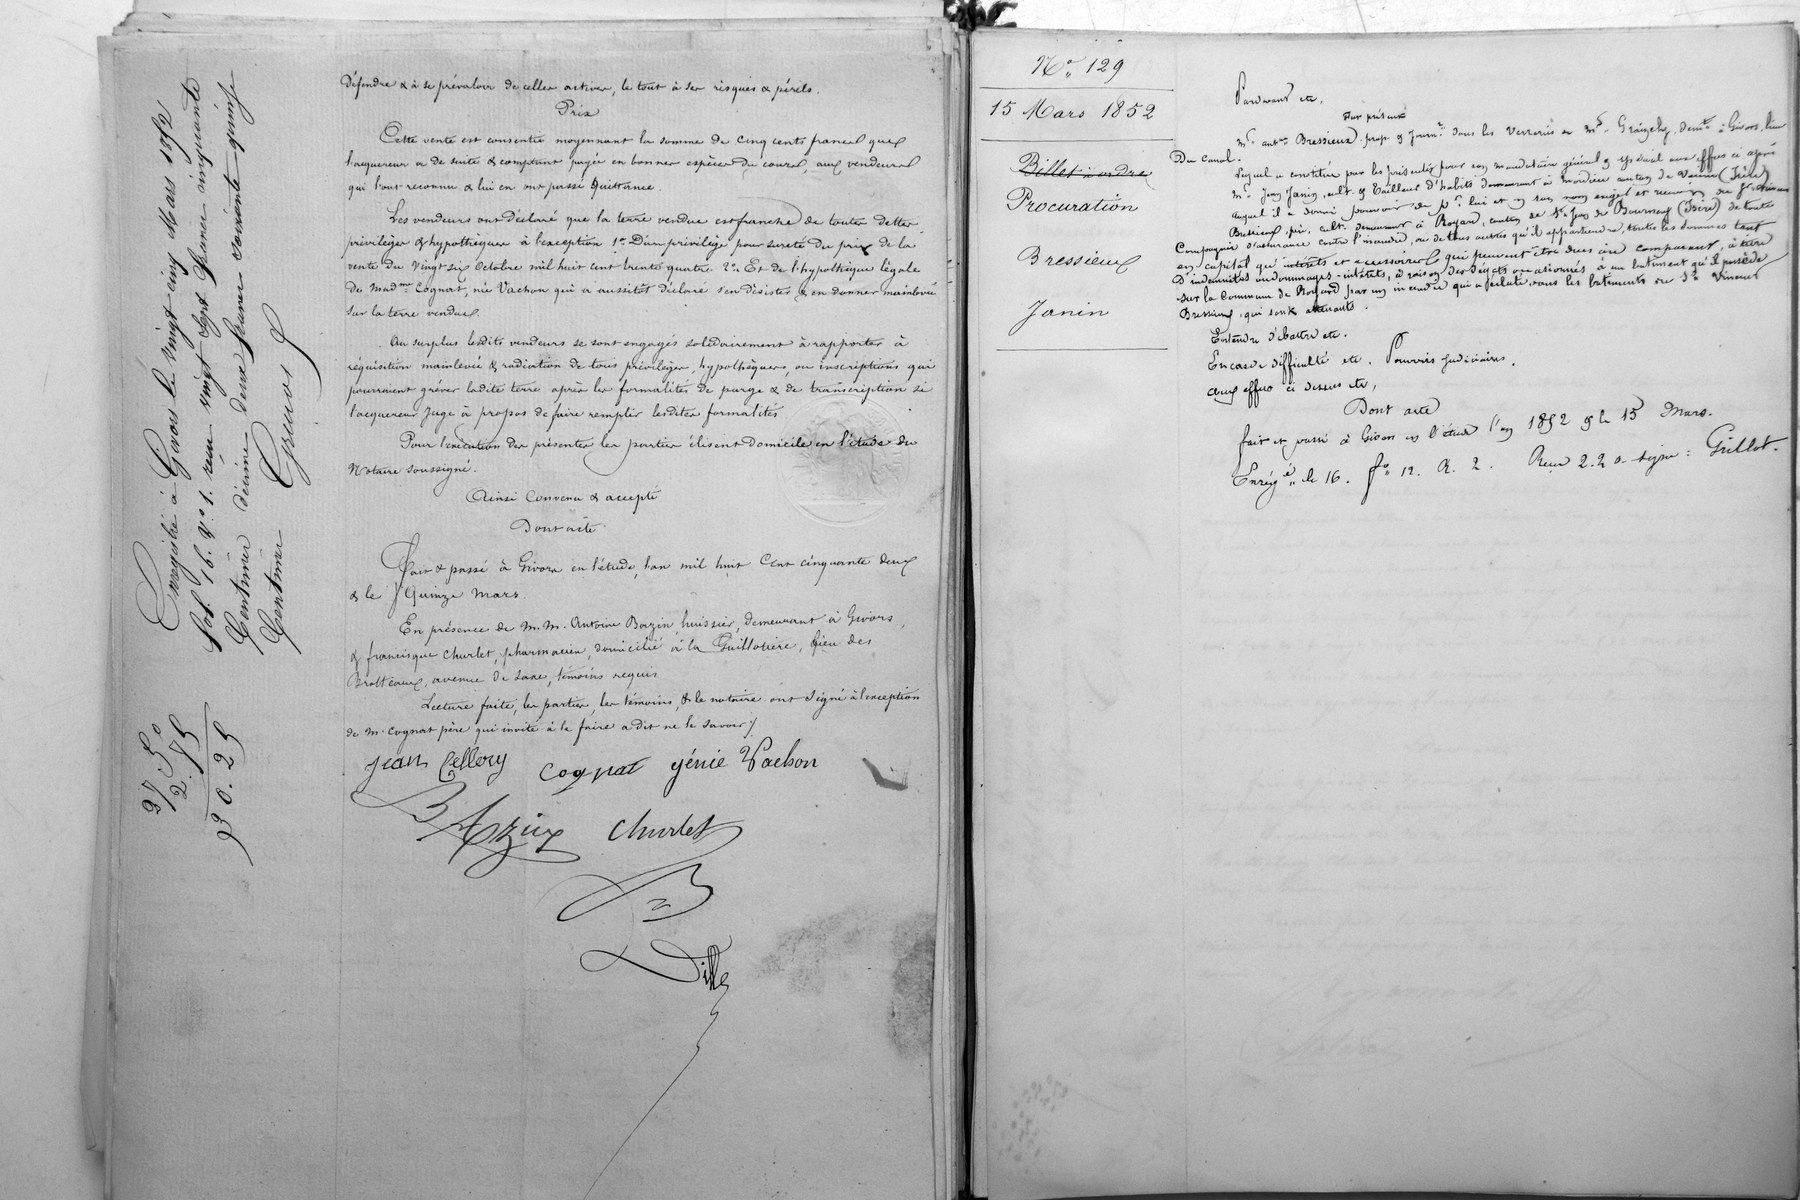 défendre & à se prévaloir de celles actives, le tout à ses risques & périls.
Prix
Cette vente est consentie moyennant la somme de cinq cents francs que
l'acquereur a de suite & comptant payée en bonnes espèces du cours, aux vendeurs
qui l'ont reconnu & lui en ont passé quittance.
Les vendeurs ont déclaré que la terre vendue est franche de toutes dettes
privilèges & hypothèques à l'exception 1° D'un privilège pour sureté du prix de la
vente du vingt six Octobre mil huit cent trente quatre 2° Et de l'hypothèque légale
de mad.me Cognat, née Vachon qui a aussitôt déclaré s'en désister & en donner mainlevée
sur la terre vendue.
Au surplus lesdits vendeurs se sont engagés solidairement à rapporter à
réquisition mainlevée & radiation de tous privilèges, hypothèques, ou inscriptions qui
pourraient gréver ladite terre après les formalités de purge & de transcription si
l'acquereur juge à propos de faire remplir lesdites formalités.
Pour l'exécution des présentes les parties élisent domicile en l'étude du
Notaire soussigné.
Ainsi convenu & accepté
Dont acte
Fait & passé à Givors en l'étude, l'an mil huit cent cinquante deux
& le Quinze mars.
En présence de m.m. Antoine Bazin huissier, demeurant à Givors,
& francisque Churlet, pharmacien, domicilié à la Guillotière, lieu des
Brotteaux, avenue de Saxe, témoins requis
Lecture faite, les parties, les témoins, & le notaire ont signé à l'exception
de m. Cognat père qui invité à le faire a dit ne le savoir
jean Cellery cognat génie Vachon
BAzin churlet
Enregistré à Givors le vingt cinq Mars 1852
fol. 16. V° 1. reçu vingt sept francs cinquante
Centimes décime deux francs soixante quinze
Centimes
27.50
2.75
30.25
N° 129
15 Mars 1852
Billet à ordre
Procuration
Bressieux
Janin
Pardevant etc.
Fut présent
M.r ant.ne Bressieux prop. & Journ.r dans les Verreries de M.r demt à Givors, lieu
Du Canal.
Lequel a constitué par les présentes pour son mandataire général & spécial aux effets ci après
M.r Janin, cult. & Tailleur d'habits demeurant à canton de Vienne (Isère)
auquel il a donné pouvoir de p.r lui et en son nom exiger et recevoir
Bressieux, cult. demeurant à Royas, canton de St Jean de Bournay (Isère) de toute
Compagnie d'assurance contre l'incendie, ou de tous autres qu'il appartiendra, toutes les sommes tant
en capital qu'intérêts et accessoires qui peuvent être dues au comparant, à titre
D'indemnités ou dommages-intérêts, à raison des dégâts occasionnés à un batiment qu'il possède
sur la Commune de Royas par un incendie qui a éclaté dans les batiments de Vincent
Bressieux, qui sont attenants.
Entendre débattre etc.
En cas de difficulté etc. Pouvoirs judiciaires.
Aux effets ci dessus etc,
Dont acte
fait et passé à Givors en l'étude l'an 1852 & le 15 Mars.
Enregé le 16. f° 12. R. 2. Reçu 2.20 signé: Grillot.